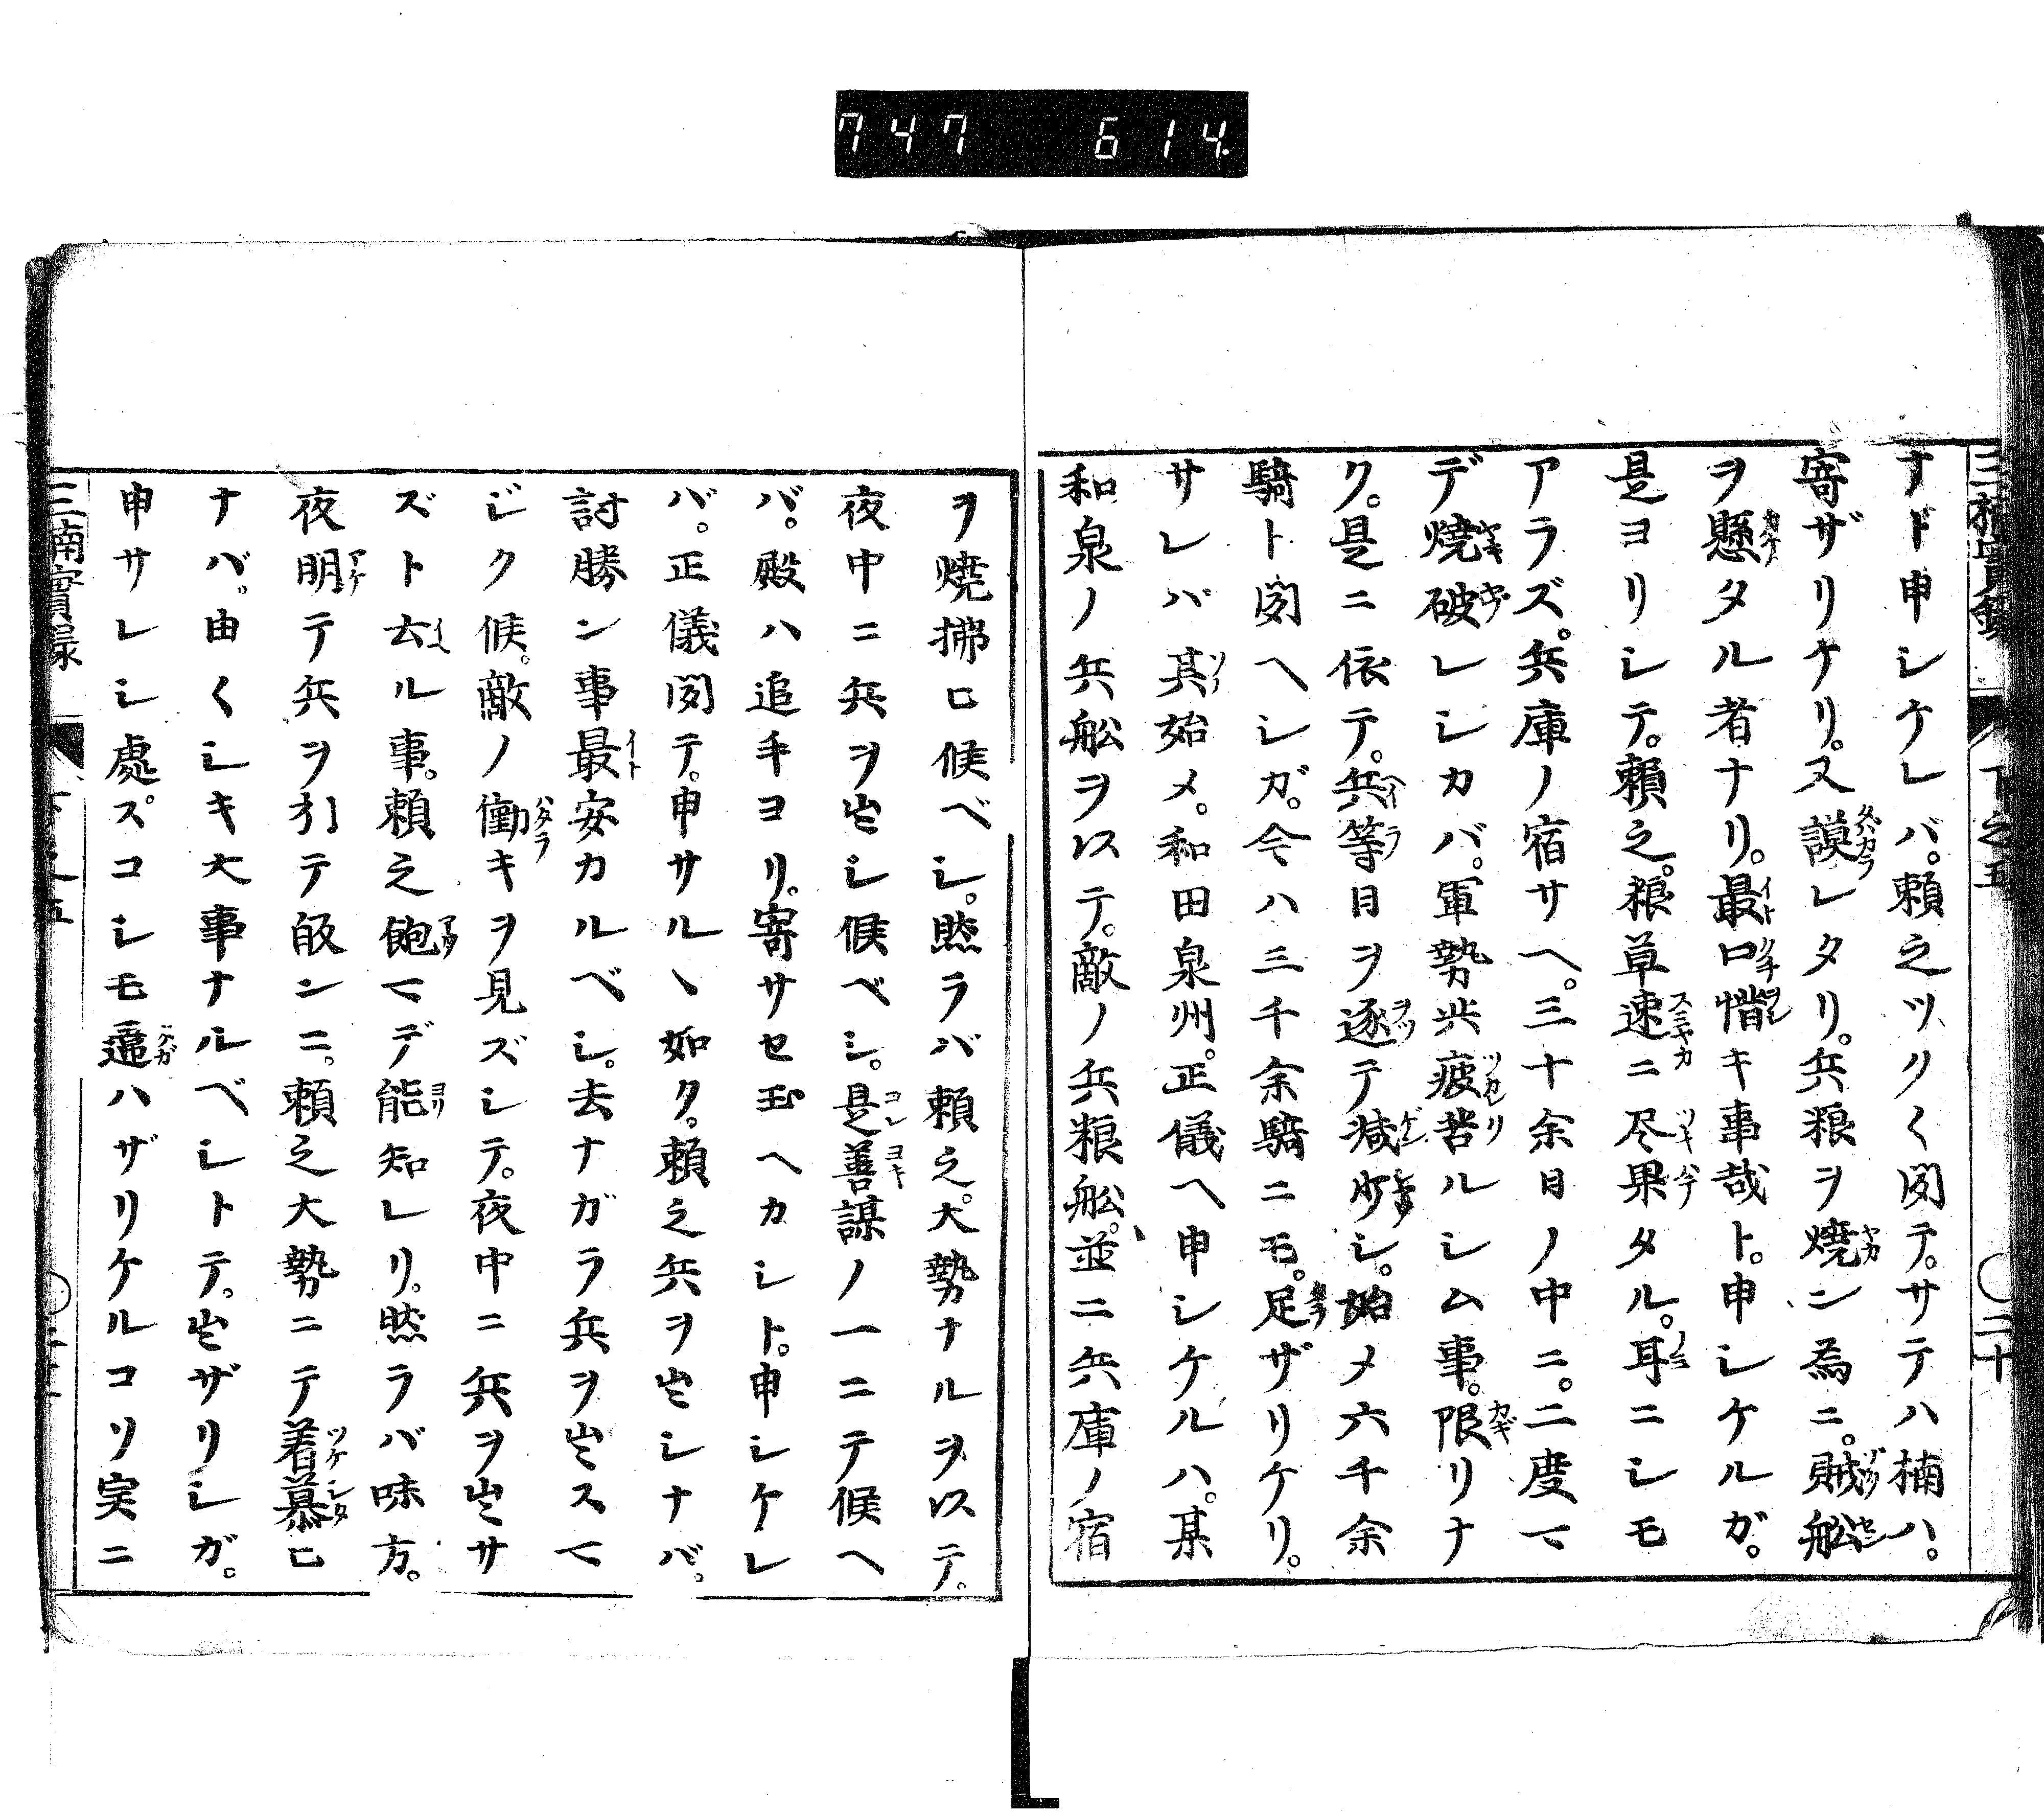 747 614
三楠實錄 下之五 ○二十
ナド申シケレバ。頼之ツク〱聞テ。サテハ楠ハ。
寄ザリケリ。又謨レタリ。兵粮ヲ燒ン為ニ。賊船
ヲ懸タル者ナリ。最口惜キ事哉ト。申シケルガ。
是ヨリシテ。頼之。粮草速ニ尽果タル。耳ニシモ
アラズ。兵庫ノ宿サヘ。三十余日ノ中ニ。二度マ
デ燒破レシカバ。軍勢共疲苦ルシム事。限リナ
ク。是ニ依テ。兵等日ヲ逐テ減少シ。始メ六千余
騎ト聞ヘシガ。今ハ三千余騎ニモ。足ザリケリ。
サレバ其始メ。和田泉州。正儀ヘ申シケルハ。某
和泉ノ兵舩ヲ以テ。敵ノ兵粮舩。並ニ兵庫ノ宿
ヲ燒拂ヒ候ベシ。然ラバ頼之。大勢ナルヲ以テ。
夜中ニ兵ヲ出シ候ベシ。是善謀ノ一ニテ候ヘ
バ。殿ハ追手ヨリ。寄サセ玉ヘカシト。申シケレ
バ。正儀聞テ。申サルヽ如ク。頼之兵ヲ出シナバ。
討勝ン事最安カルベシ。去ナガラ兵ヲ出スマ
ジク候。敵ノ働キヲ見ズシテ。夜中ニ兵ヲ出サ
ズト云ル事。頼之飽マデ能知レリ。然ラバ味方。
夜明テ兵ヲ引テ皈ンニ。頼之大勢ニテ着慕ヒ
ナバ。由〱シキ大事ナルベシトテ。出ザリシガ。
申サレシ處スコシモ違ハザリケルコソ実ニ
三楠實録